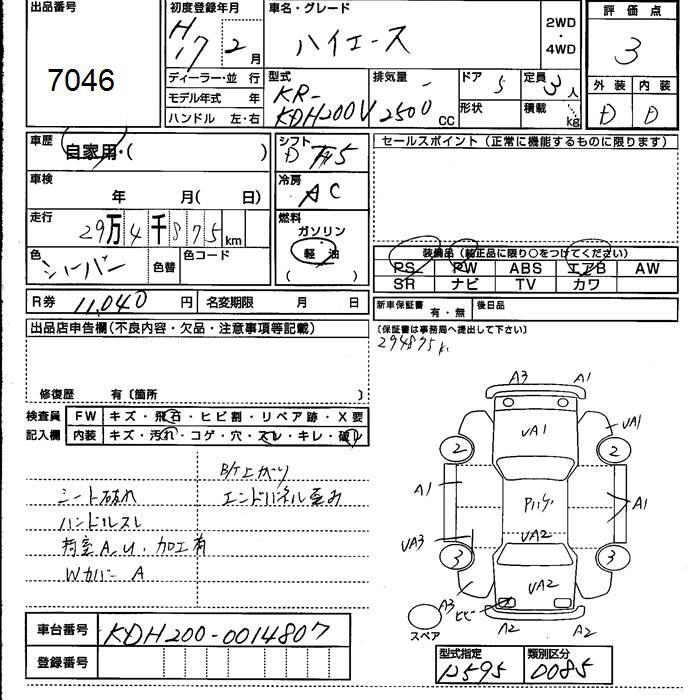 出品番号
7046
初度登録年月
H17 2月
車名・グレード
ハイエース
2WD・4WD
評価点
3
外装 内装
D D
ディーラー・並行
モデル年式 年
ハンドル 左・右
型式
KR-KDH200V
排気量
2500 cc
ドア 5
形状
定員 3人
積載 kg
車歴
自家用・( )
シフト
冷房
AC
車検
年 月( 日)
走行
29万4千875km
燃料
ガソリン
軽油
( )
色
シルバー
色替
色コード
R券 11,040 円
名変期限 月 日
セールスポイント (正常に機能するものに限ります)
装備品 (純正品に限り○をつけてください)
PS PW ABS エアB AW
SR ナビ TV カワ
新車保証書 有・無
後日品
(保証書は事務局へ提出して下さい)
294875k
出品店申告欄(不良内容・欠品・注意事項等記載)
修復歴 有〔箇所 〕
検査員記入欄
FW キズ・飛石・ヒビ割・リペア跡・X要
内装 キズ・汚れ・コゲ・穴・スレ・キレ・破レ
シート破れ
ハンドルスレ
荷室A,U、加工有
Wカバー A
エンドパネル歪み
A3 A1
UA1 UA1
2 2
A1 A1
UA2
UA3
3 3
UA2
A3 ヒビ
A2 A2
スペア
車台番号 KDH200-0014807
登録番号
型式指定 12595
類別区分 0085